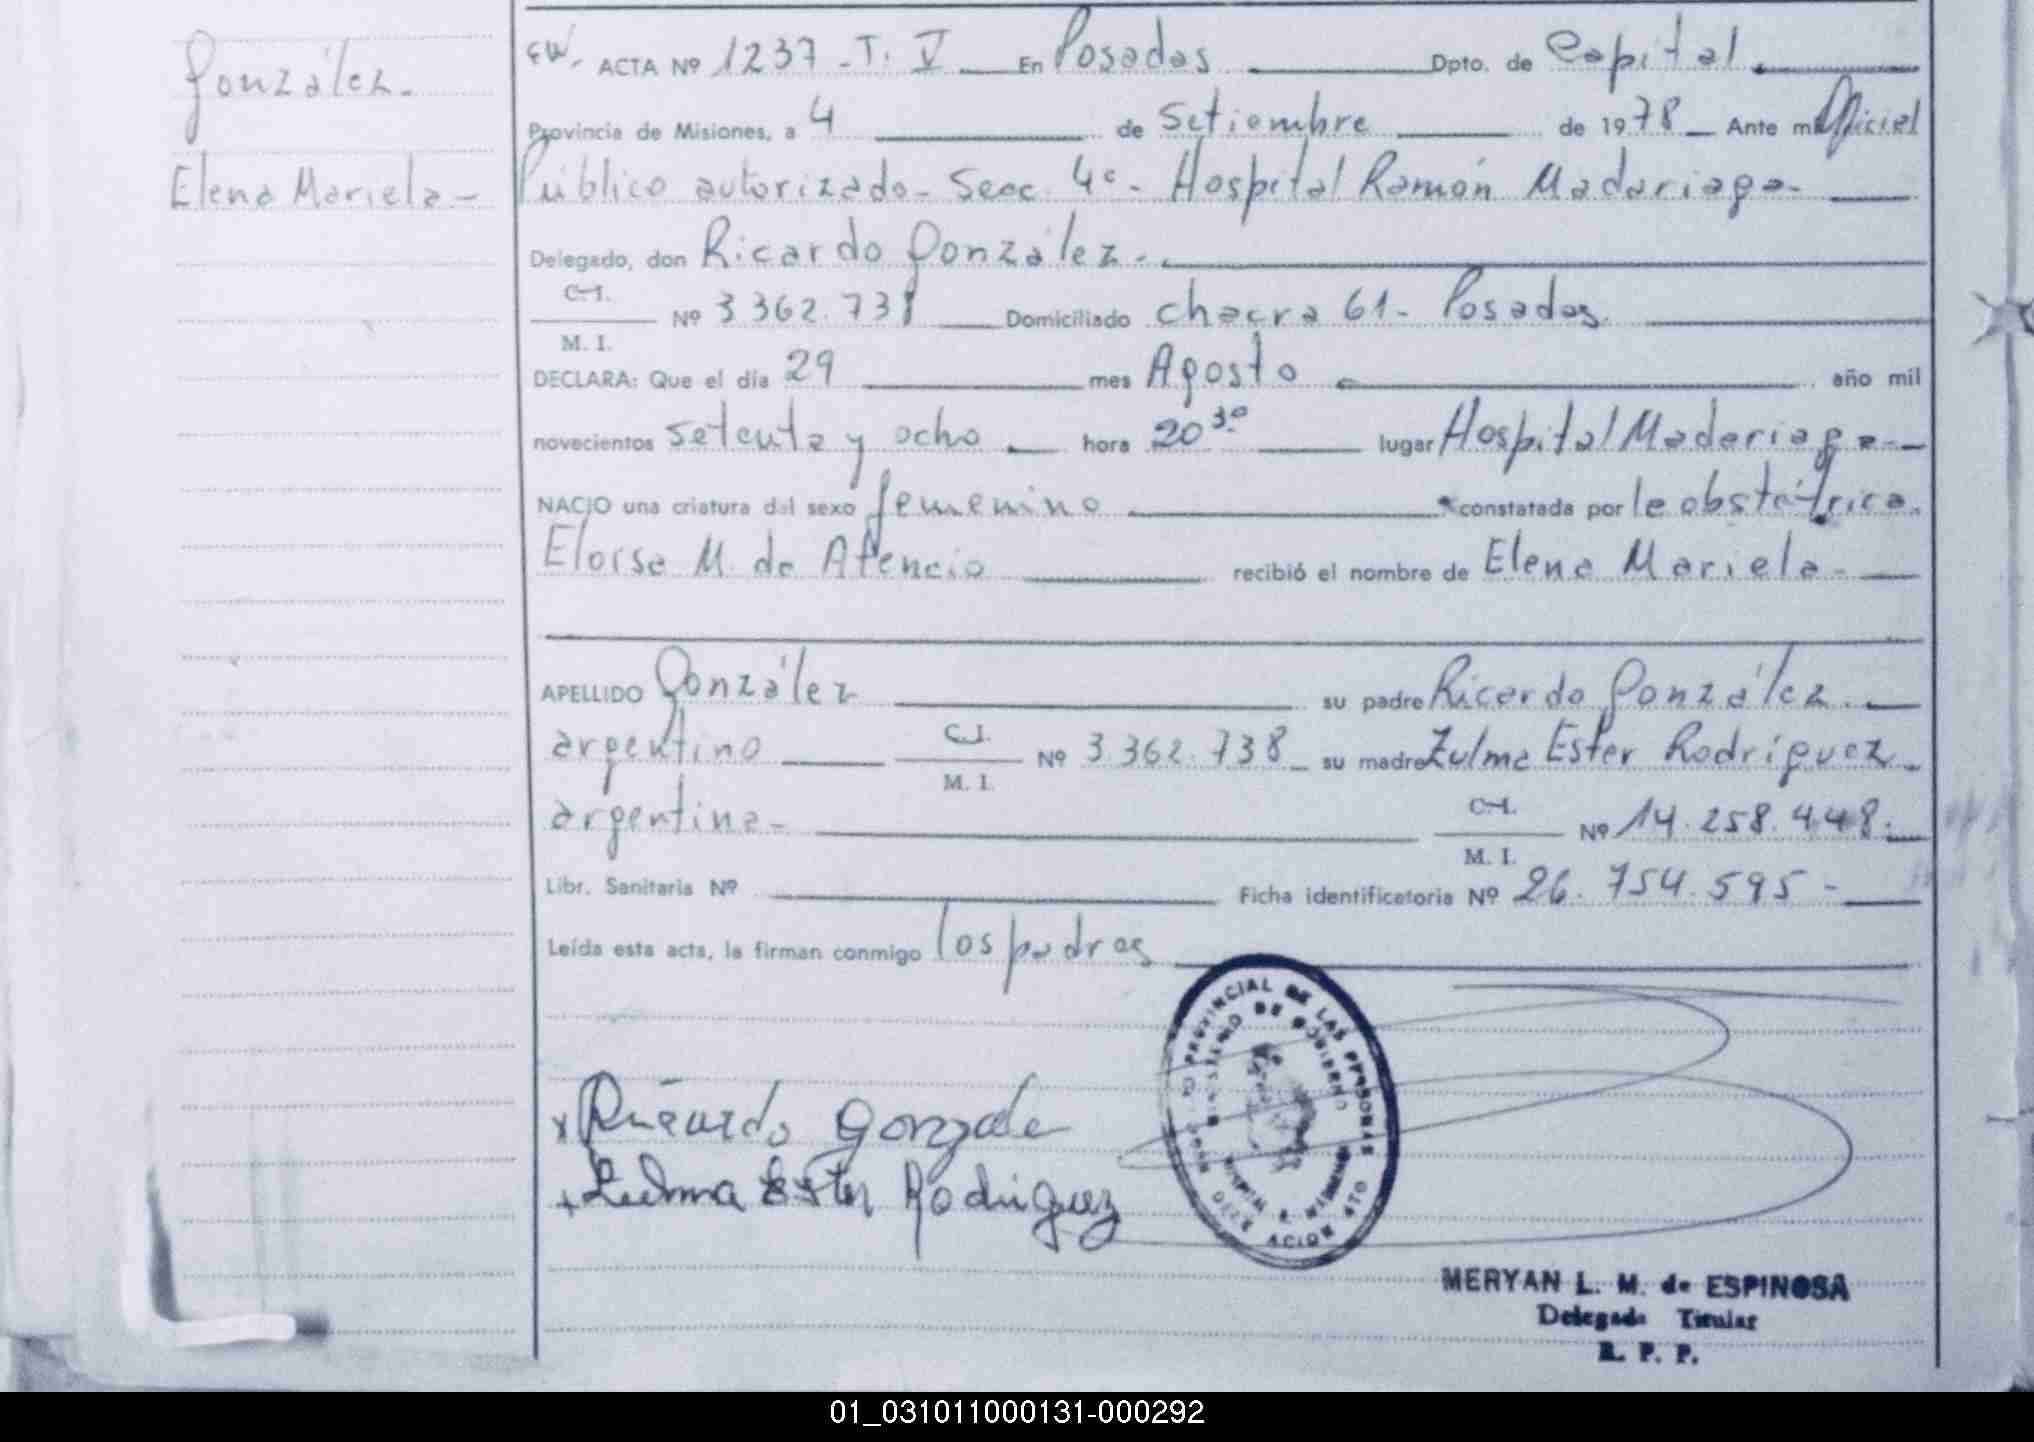 González.
Elena Mariela-
ACTA Nº 1237-T. V En Posadas Dpto. de Capital.
Provincia de Misiones, a 4 de Setiembre de 1978 Ante mi Oficial
Público autorizado- Secc. 4º- Hospital Ramón Madariaga-
Delegado, don Ricardo González.
C.I.
M. I. Nº 3362.738 Domiciliado chacra 61- Posadas
DECLARA: Que el día 29 mes Agosto año mil
novecientos setenta y ocho hora 20 30 lugar Hospital Madariaga-
NACIO una criatura del sexo femenino constatada por la obstétrica.
Eloisa M. de Atencio recibió el nombre de Elena Mariela-
APELLIDO González su padre Ricardo González.
argentino C.I.
M. I. Nº 3.362.738 su madre Zulma Ester Rodríguez.
argentina- C.I.
M. I. Nº 14.258.448.
Libr. Sanitaria Nº Ficha identificatoria Nº 26.754.595-
Leída esta acta, la firman conmigo los padres
PROVINCIAL DE LAS PERSONAS
MINISTERIO DE GOBIERNO
x Ricardo Gonzale
+ Zulma Ester Rodriguez
MERYAN L. M. de ESPINOSA
Delegada Titular
R. P. P.
01_031011000131-000292